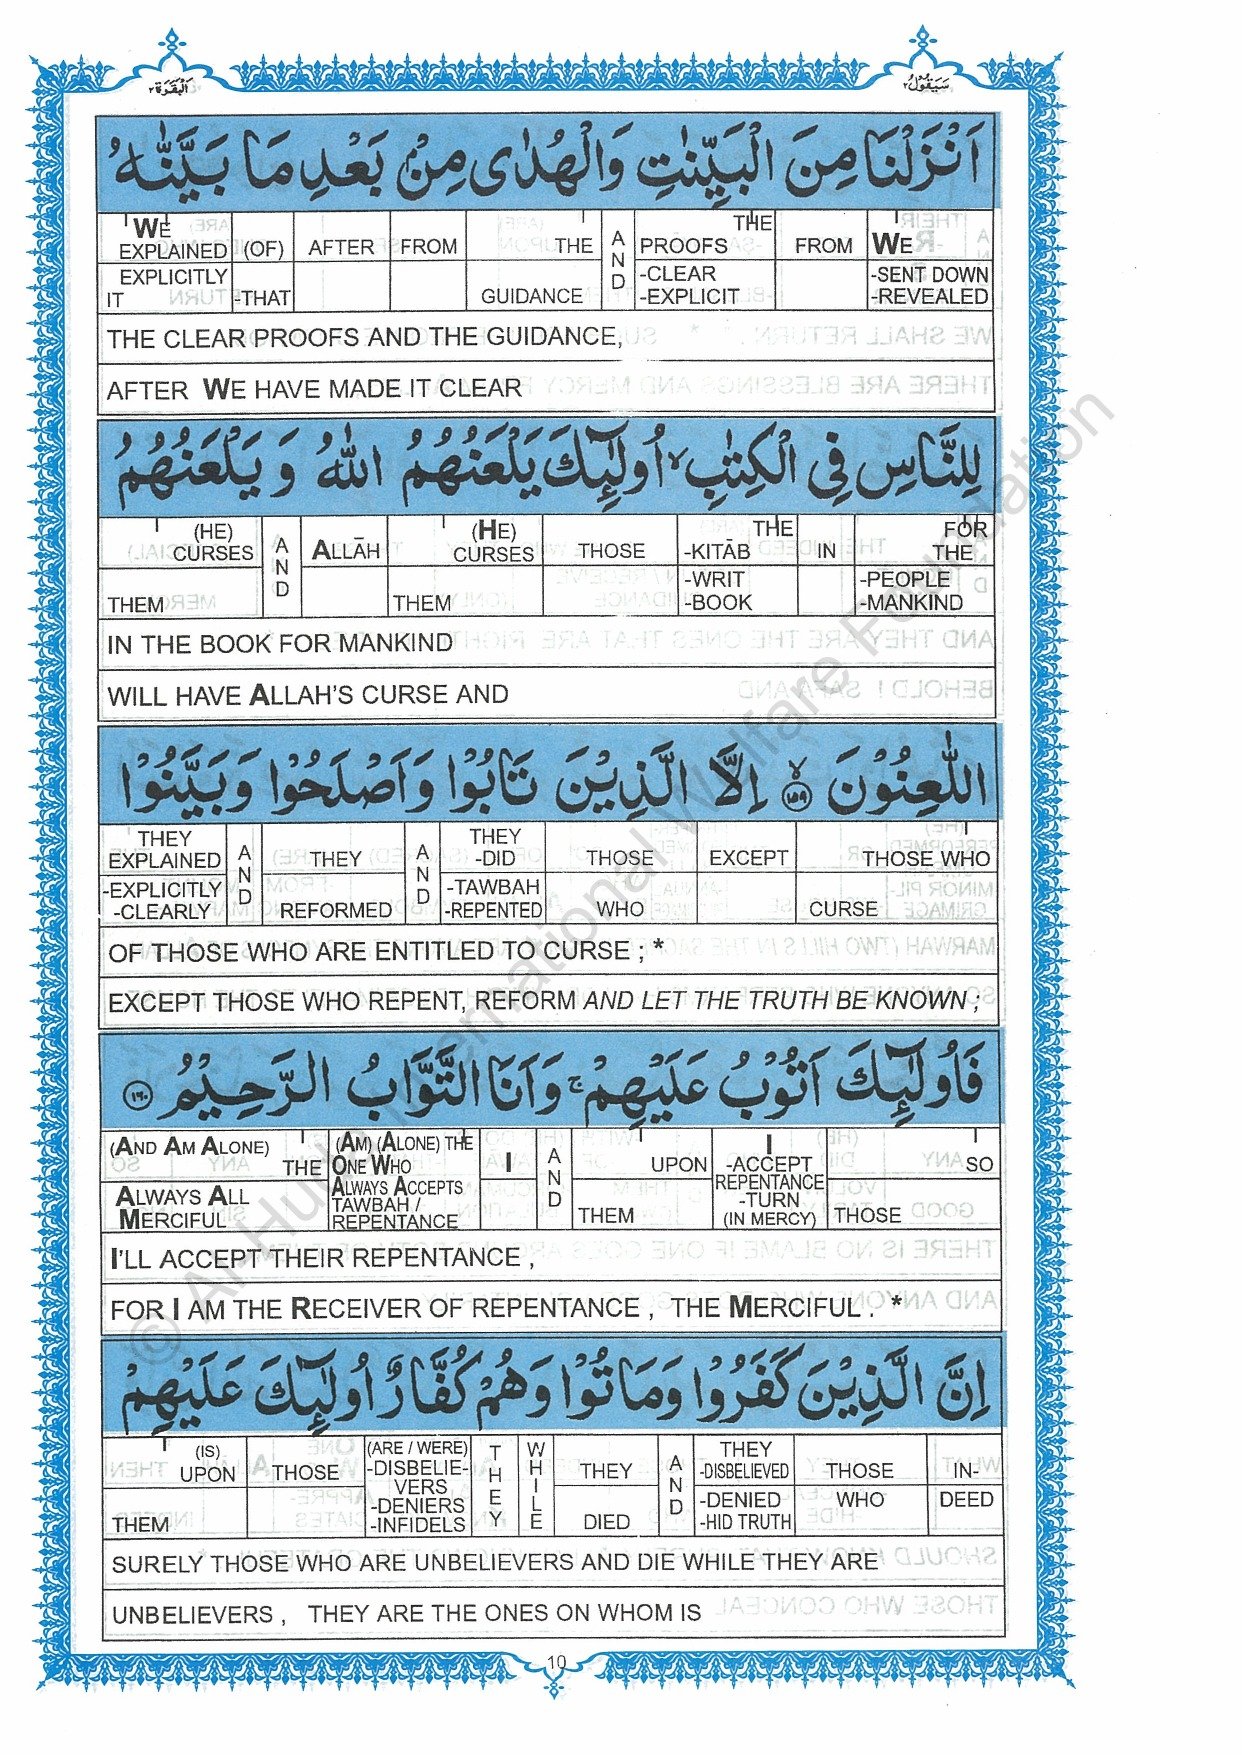 البقرة ٢
سيقول ٢
اَنْزَلْنَا مِنَ الْبَيِّنٰتِ وَالْهُدٰى مِنْۢ بَعْدِ مَا بَيَّنّٰهُ
WE EXPLAINED (OF) AFTER FROM THE AND THE PROOFS FROM WE
EXPLICITLY IT -THAT GUIDANCE -CLEAR -EXPLICIT -SENT DOWN -REVEALED
THE CLEAR PROOFS AND THE GUIDANCE,
AFTER WE HAVE MADE IT CLEAR
لِلنَّاسِ فِى الْكِتٰبِ ۙ اُولٰٓئِكَ يَلْعَنُهُمُ اللّٰهُ وَ يَلْعَنُهُمُ
(HE) CURSES AND ALLĀH (HE) CURSES THOSE THE -KITĀB IN FOR THE
THEM THEM -WRIT -BOOK -PEOPLE -MANKIND
IN THE BOOK FOR MANKIND
WILL HAVE ALLAH'S CURSE AND
اللّٰعِنُوْنَ ۙ‏﴿۱۵۹﴾ اِلَّا الَّذِيْنَ تَابُوْا وَاَصْلَحُوْا وَبَيَّنُوْا
THEY EXPLAINED AND THEY AND THEY -DID THOSE EXCEPT THOSE WHO
-EXPLICITLY -CLEARLY REFORMED -TAWBAH -REPENTED WHO CURSE
OF THOSE WHO ARE ENTITLED TO CURSE ; *
EXCEPT THOSE WHO REPENT, REFORM AND LET THE TRUTH BE KNOWN ;
فَاُولٰٓئِكَ اَتُوْبُ عَلَيْهِمْ ۚ وَاَنَا التَّوَّابُ الرَّحِيْمُ ﴿۱۶۰﴾
(AND AM ALONE) THE (AM) (ALONE) THE ONE WHO I AND UPON I -ACCEPT SO
ALWAYS ALL MERCIFUL ALWAYS ACCEPTS TAWBAH / REPENTANCE THEM REPENTANCE -TURN (IN MERCY) THOSE
I'LL ACCEPT THEIR REPENTANCE ,
FOR I AM THE RECEIVER OF REPENTANCE , THE MERCIFUL . *
اِنَّ الَّذِيْنَ كَفَرُوْا وَمَاتُوْا وَهُمْ كُفَّارٌ اُولٰٓئِكَ عَلَيْهِمْ
(IS) UPON THOSE (ARE / WERE) -DISBELIE-VERS THEY WHILE THEY AND THEY -DISBELIEVED THOSE IN-
THEM -DENIERS -INFIDELS DIED -DENIED -HID TRUTH WHO DEED
SURELY THOSE WHO ARE UNBELIEVERS AND DIE WHILE THEY ARE
UNBELIEVERS , THEY ARE THE ONES ON WHOM IS
10
© Al-Huda International Welfare Foundation